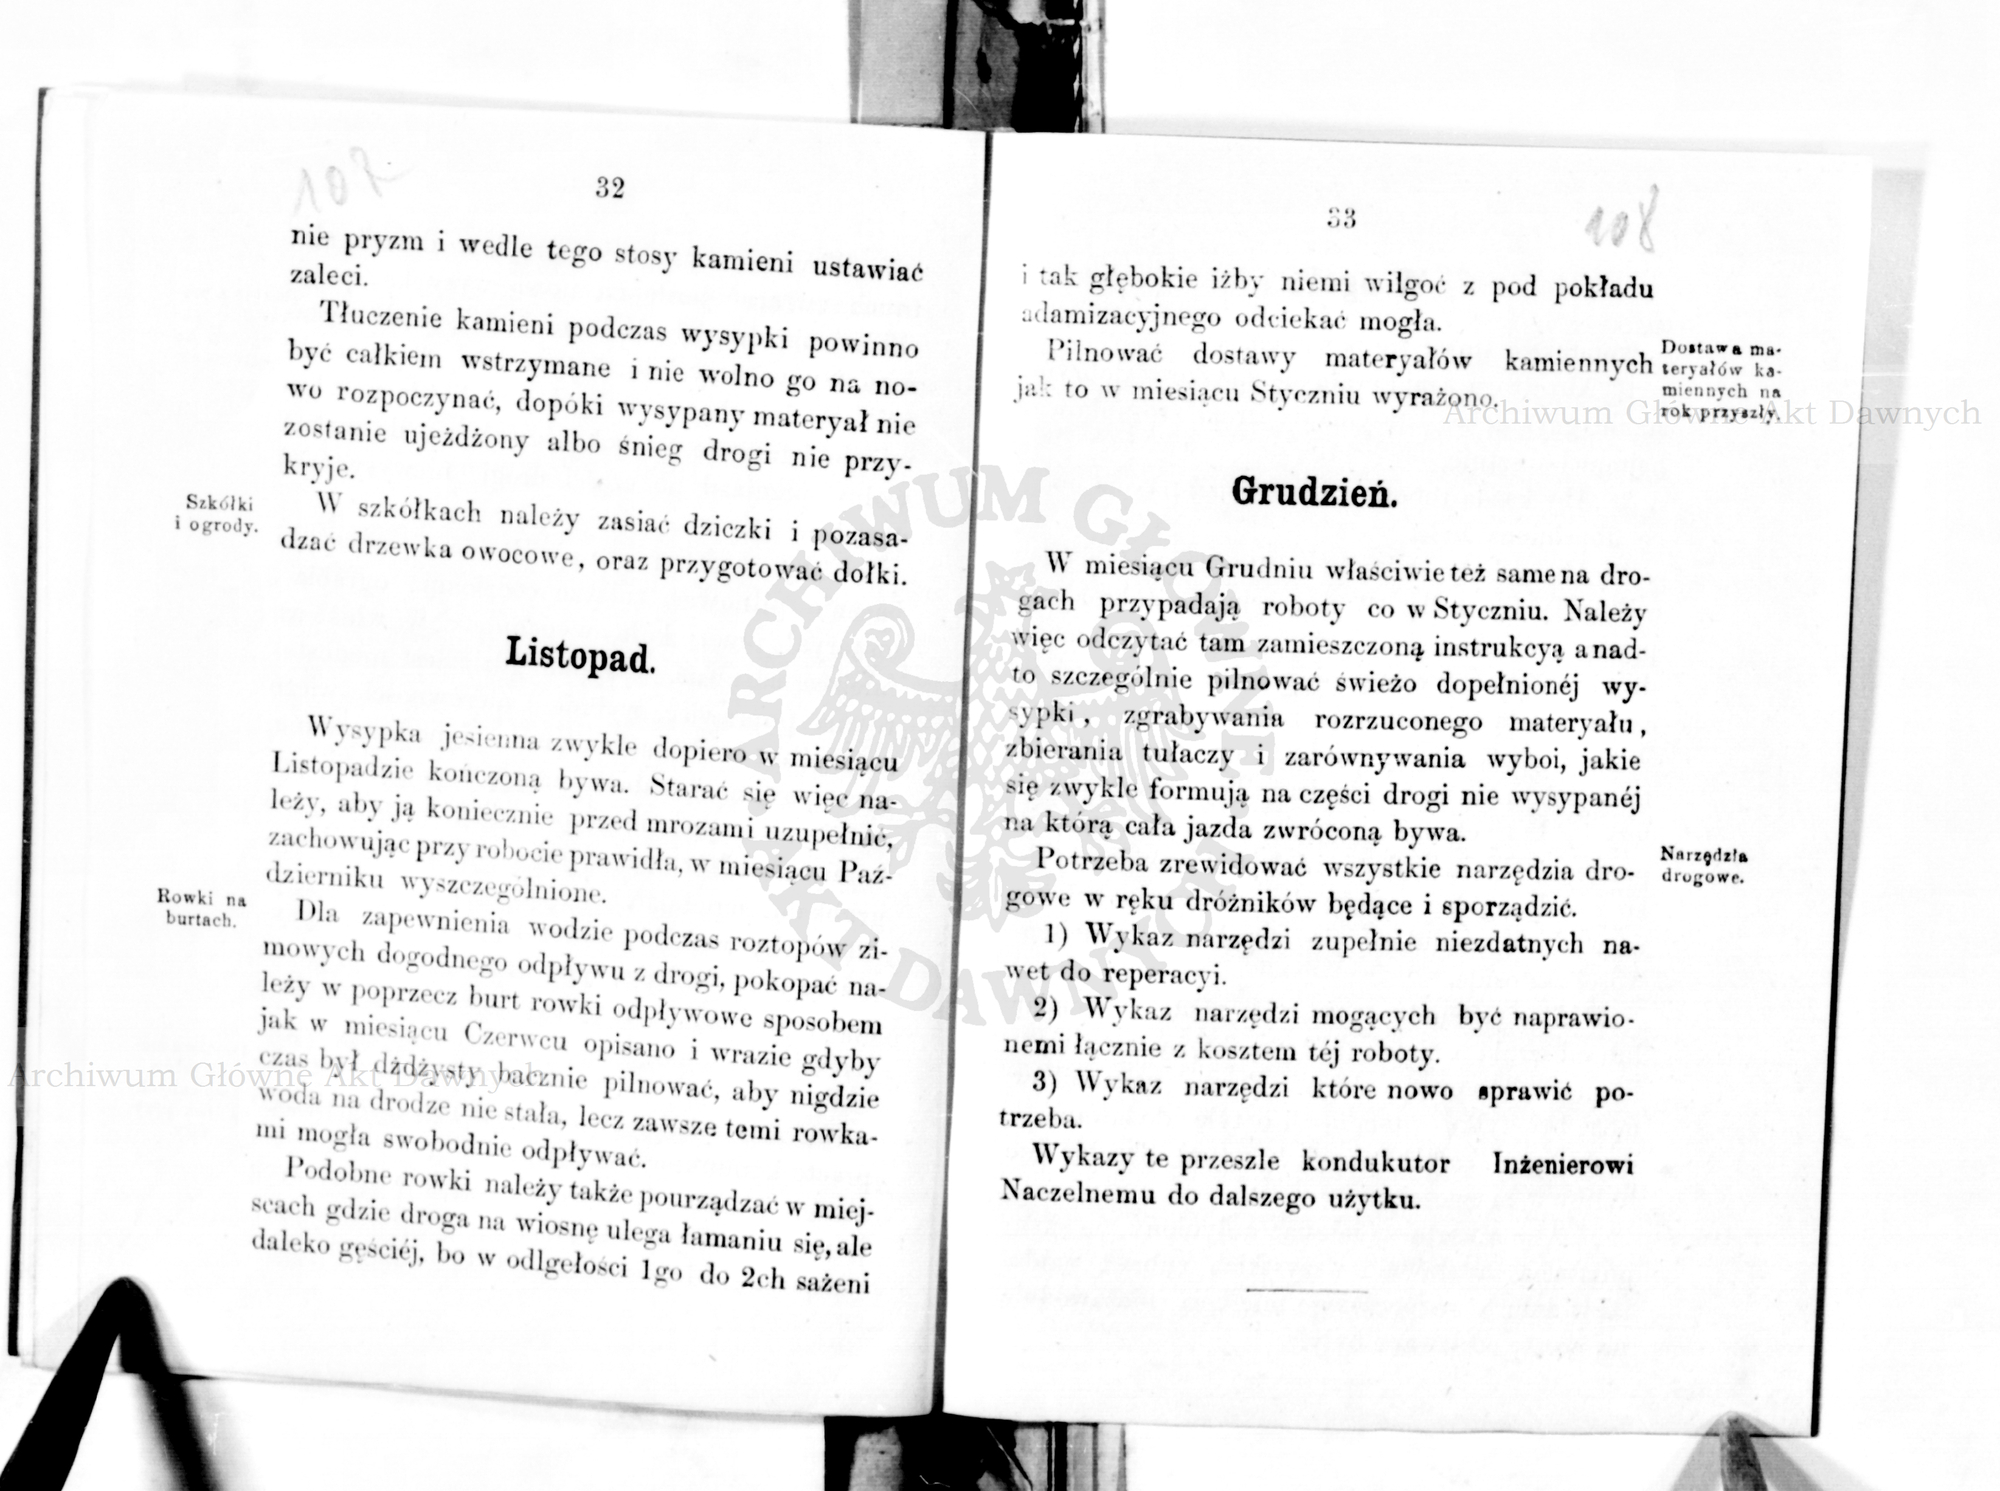 107
32
nie pryzm i wedle tego stosy kamieni ustawiać
zaleci.
Tłuczenie kamieni podczas wysypki powinno
być całkiem wstrzymane i nie wolno go na no-
wo rozpoczynać, dopóki wysypany materyał nie
zostanie ujeżdżony albo śnieg drogi nie przy-
kryje.
Szkółki
i ogrody.
W szkółkach należy zasiać dziczki i pozasa-
dzać drzewka owocowe, oraz przygotować dołki.
Listopad.
Wysypka jesienna zwykle dopiero w miesiącu
Listopadzie kończoną bywa. Starać się więc na-
leży, aby ją koniecznie przed mrozami uzupełnić,
zachowując przy robocie prawidła, w miesiącu Paź-
dzierniku wyszczególnione.
Rowki na
burtach.
Dla zapewnienia wodzie podczas roztopów zi-
mowych dogodnego odpływu z drogi, pokopać na-
leży w poprzecz burt rowki odpływowe sposobem
jak w miesiącu Czerwcu opisano i wrazie gdyby
czas był dżdżysty bacznie pilnować, aby nigdzie
woda na drodze nie stała, lecz zawsze temi rowka-
mi mogła swobodnie odpływać.
Podobne rowki należy także pourządzać w miej-
scach gdzie droga na wiosnę ulega łamaniu się, ale
daleko gęściéj, bo w odlgełości 1go do 2ch sażeni
108
33
i tak głębokie iżby niemi wilgoć z pod pokładu
adamizacyjnego odciekać mogła.
Pilnować dostawy materyałów kamiennych
jak to w miesiącu Styczniu wyrażono.
Dostawa ma-
teryałów ka-
miennych na
rok przyszły.
Grudzień.
W miesiącu Grudniu właściwie też same na dro-
gach przypadają roboty co w Styczniu. Należy
więc odczytać tam zamieszczoną instrukcyą a nad-
to szczególnie pilnować świeżo dopełnionéj wy-
sypki, zgrabywania rozrzuconego materyału,
zbierania tułaczy i zarównywania wyboi, jakie
się zwykle formują na części drogi nie wysypanéj
na którą cała jazda zwróconą bywa.
Narzędzia
drogowe.
Potrzeba zrewidować wszystkie narzędzia dro-
gowe w ręku dróżników będące i sporządzić.
1) Wykaz narzędzi zupełnie niezdatnych na-
wet do reperacyi.
2) Wykaz narzędzi mogących być naprawio-
nemi łącznie z kosztem téj roboty.
3) Wykaz narzędzi które nowo sprawić po-
trzeba.
Wykazy te przeszle kondukutor Inżenierowi
Naczelnemu do dalszego użytku.
Archiwum Główne Akt Dawnych
Archiwum Główne Akt Dawnych
ARCHIWUM GŁÓWNE AKT DAWNYCH